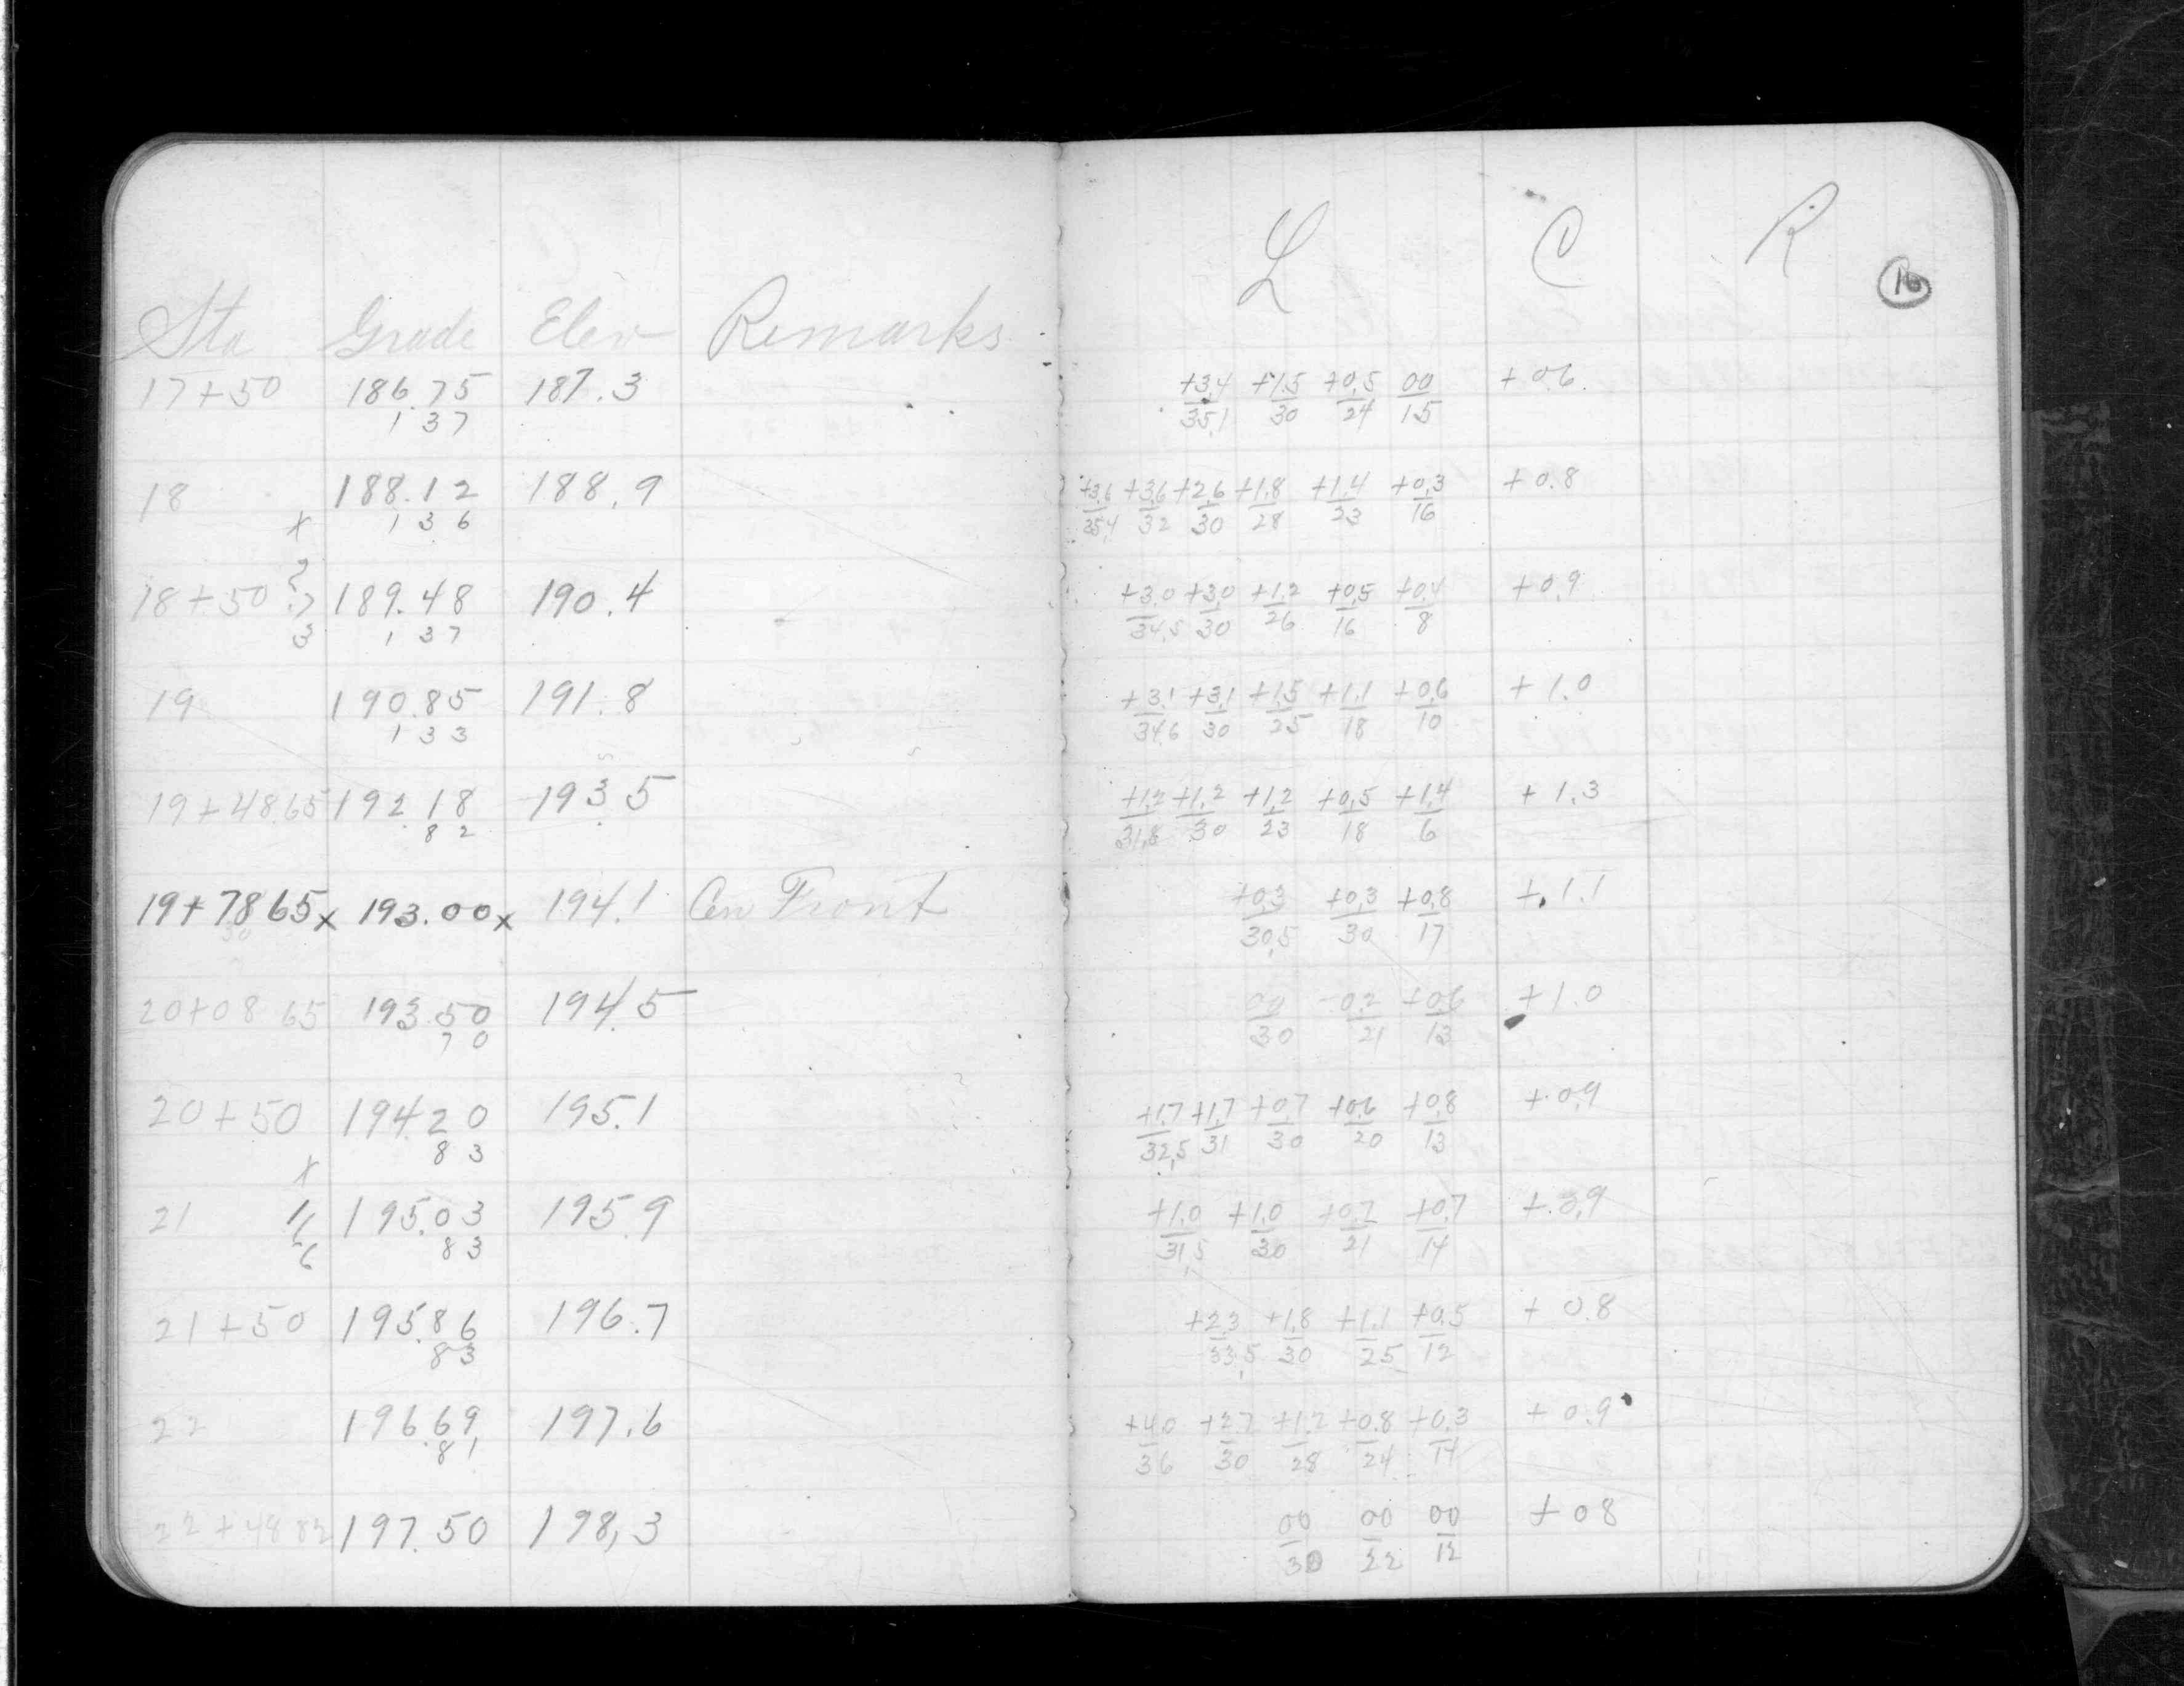 L C R
16
Sta Grade Elev Remarks
17+50 186.75 187.3 +3.4/35.1 +1.5/30 +0.5/24 00/15 +0.6
1 37
18 188.12 188.9 +3.6/35.4 +3.6/32 +2.6/30 +1.8/28 +1.4/23 +0.3/16 +0.8
x 1 3 6
18+50 189.48 190.4 +3.0/34.5 +3.0/30 +1.2/26 +0.5/16 +0.4/8 +0.9
3 1 37
19 190.85 191.8 +3.1/34.6 +3.1/30 +1.5/25 +1.1/18 +0.6/10 +1.0
1 3 3
19+48.65 192.18 193.5 +1.2/31.8 +1.2/30 +1.2/23 +0.5/18 +1.4/6 +1.3
8 2
19+78 65 x 193.00 x 194.1 Cen Front +0.3/30.5 +0.3/30 +0.8/17 +1.1
30
20+08 65 193.50 194.5 00/30 -0.2/21 +0.6/13 +1.0
7 0
20+50 194.20 195.1 +1.7/32.5 +1.7/31 +0.7/30 +0.6/20 +0.8/13 +0.9
x 8 3
21 195.03 195.9 +1.0/31.5 +1.0/30 +0.7/21 +0.7/14 +0.9
8 3
21+50 195.86 196.7 +2.3/33.5 +1.8/30 +1.1/25 +0.5/12 +0.8
83
22 196.69 197.6 +4.0/36 +2.7/30 +1.2/28 +0.8/24 +0.3/14 +0.9
.81
22+48 82 197.50 198,3 00/30 00/22 00/12 +0 8